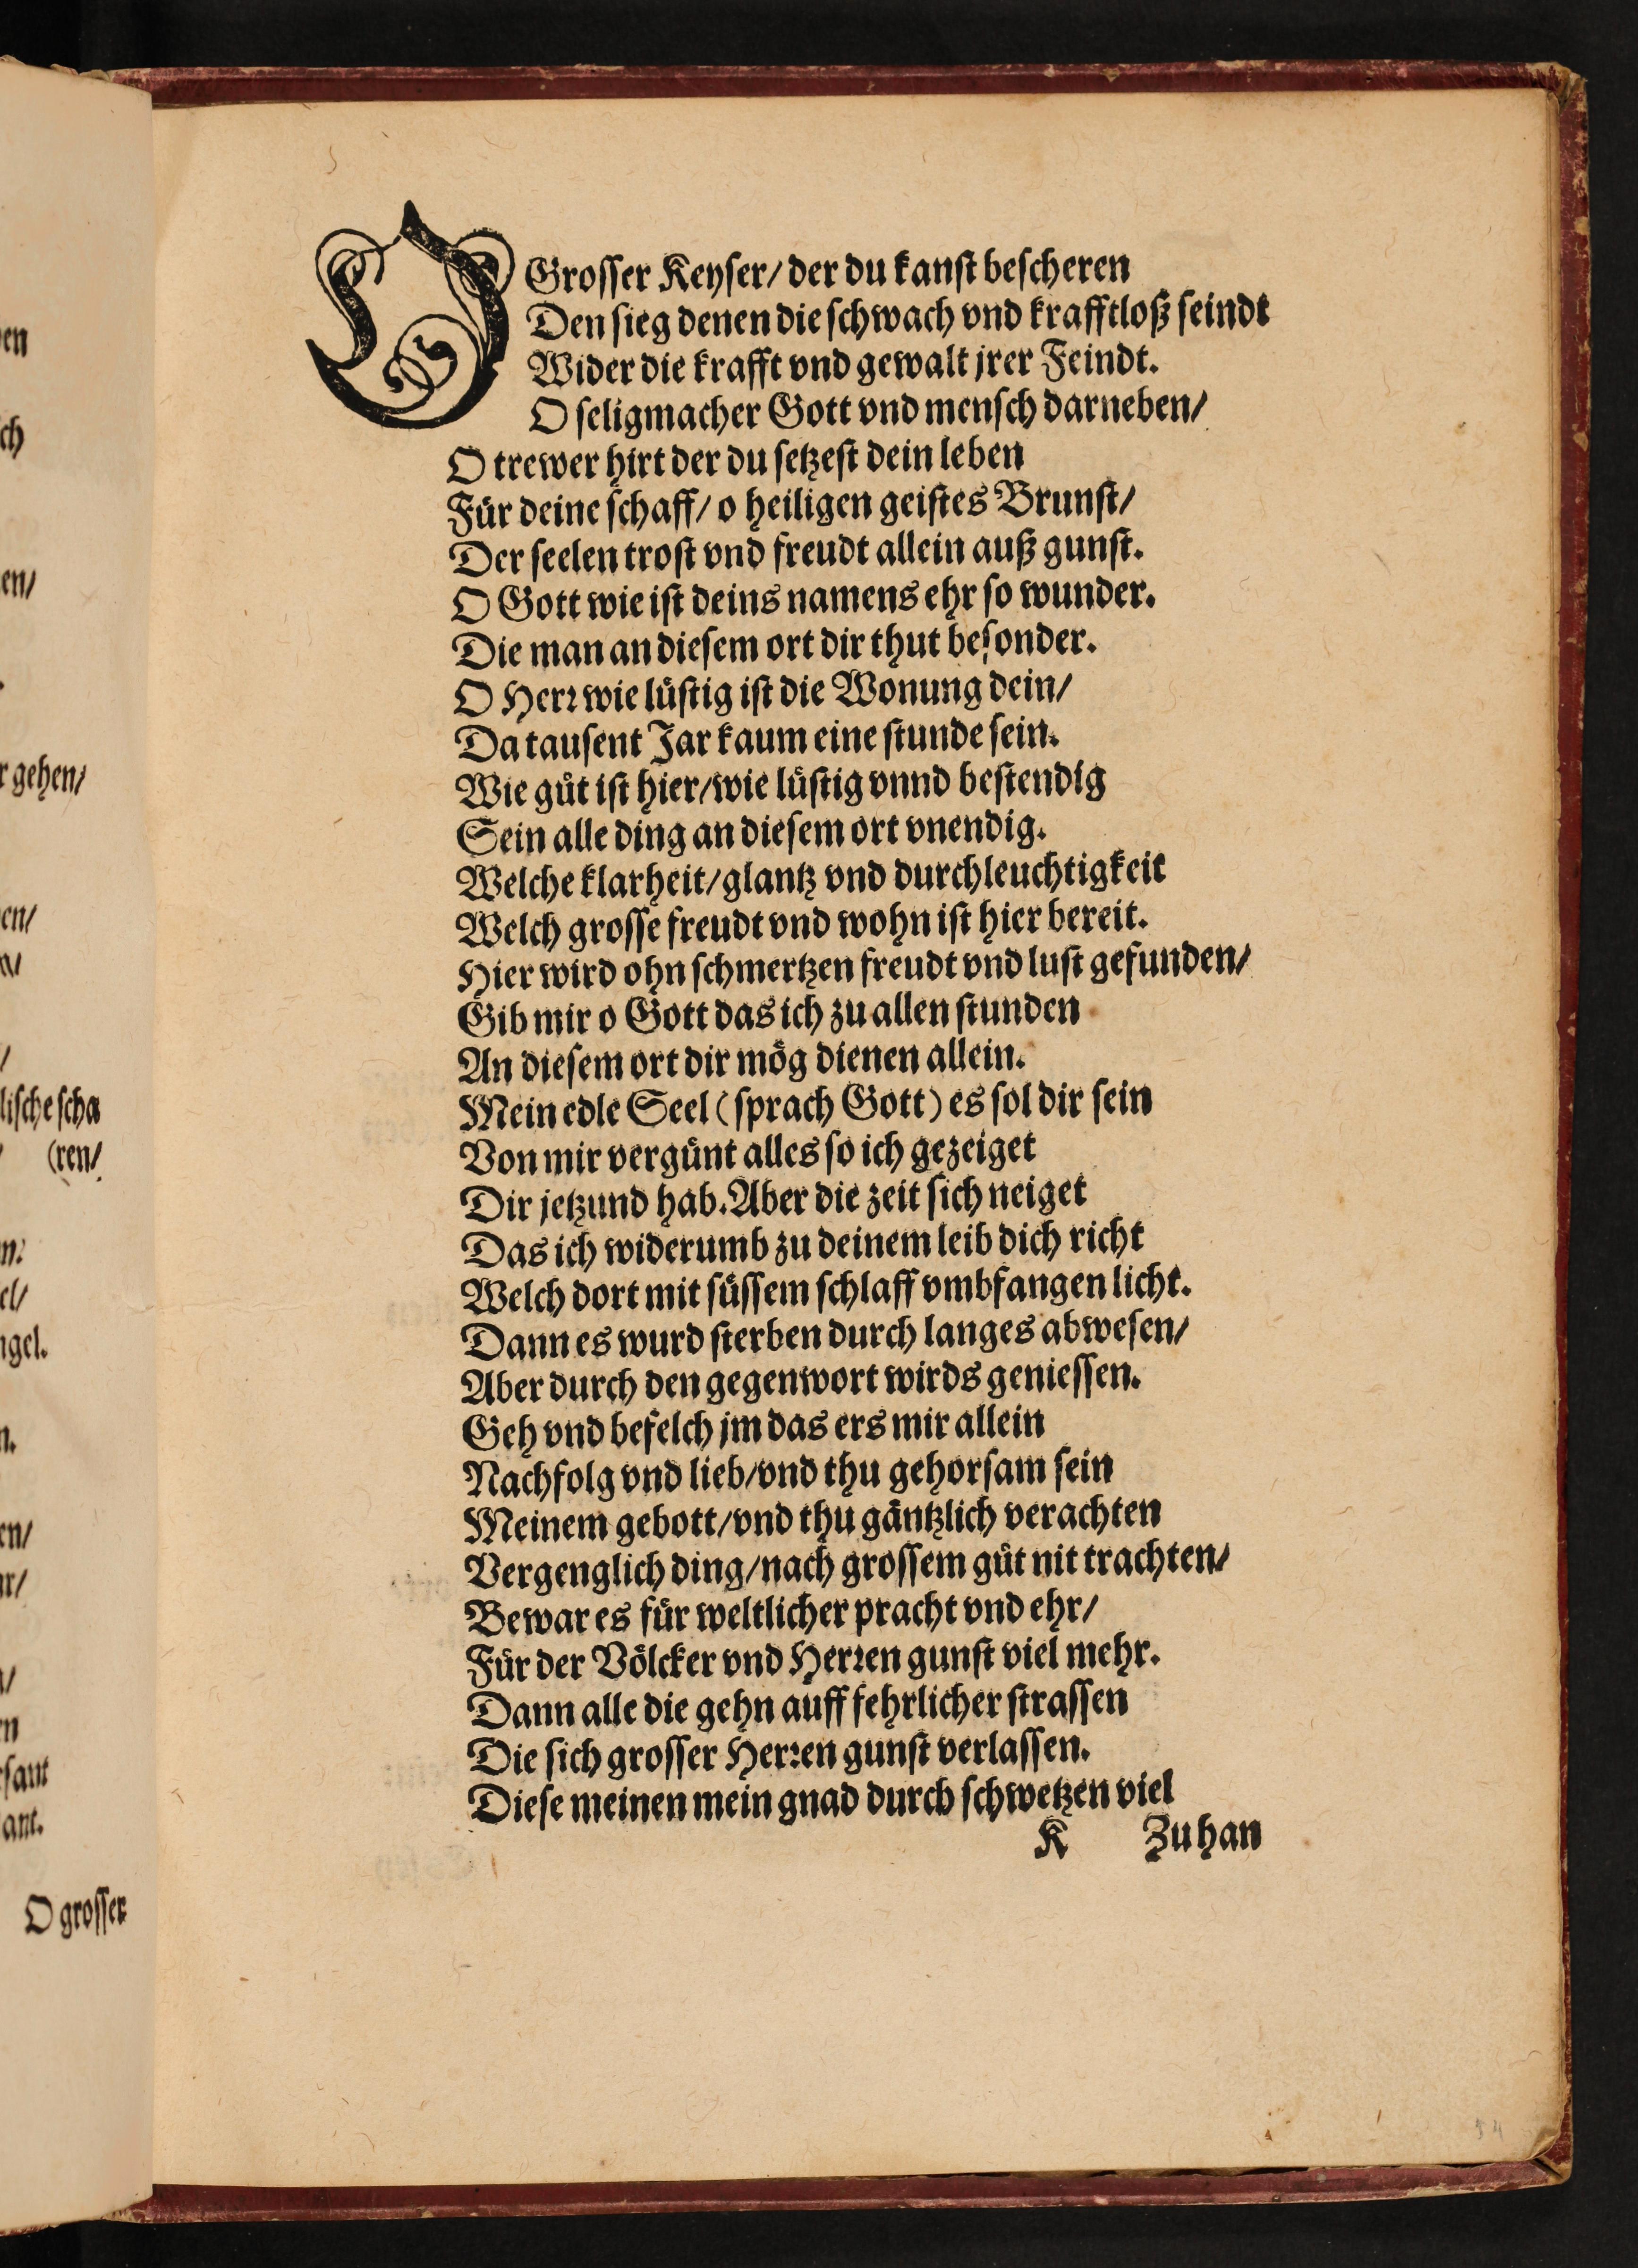 O Grosser Keyser/ der du kanst bescheren
Den sieg denen die schwach vnd krafftloß seindt
Wider die krafft vnd gewalt jrer Feindt.
O seligmacher Gott vnd mensch darneben/
O trewer hirt der du setzest dein leben
Für deine schaff/ o heiligen geistes Brunst/
Der seelen trost vnd freudt allein auß gunst.
O Gott wie ist deins namens ehr so wunder.
Die man an diesem ort dir thut besonder.
O Herr wie lüstig ist die Wonung dein/
Da tausent Jar kaum eine stunde sein.
Wie güt ist hier/ wie lüstig vnnd bestendig
Sein alle ding an diesem ort vnendig.
Welche klarheit/ glantz vnd durchleuchtigkeit
Welch grosse freudt vnd wohn ist hier bereit.
Hier wird ohn schmertzen freudt vnd lust gefunden/
Gib mir o Gott das ich zu allen stunden
An diesem ort dir mög dienen allein.
Mein edle Seel (sprach Gott) es sol dir sein
Von mir vergünt alles so ich gezeiget
Dir jetzund hab. Aber die zeit sich neiget
Das ich widerumb zu deinem leib dich richt
Welch dort mit süssem schlaff vmbfangen licht.
Dann es wurd sterben durch langes abwesen/
Aber durch den gegenwort wirds geniessen.
Geh vnd befelch jm das ers mir allein
Nachfolg vnd lieb/ vnd thu gehorsam sein
Meinem gebott/ vnd thu gäntzlich verachten
Vergenglich ding/ nach grossem güt nit trachten/
Bewar es für weltlicher pracht vnd ehr/
Für der Völcker vnd Herren gunst viel mehr.
Dann alle die gehn auff fehrlicher strassen
Die sich grosser Herren gunst verlassen.
Diese meinen mein gnad durch schwetzen viel
K Zu han
O grosser